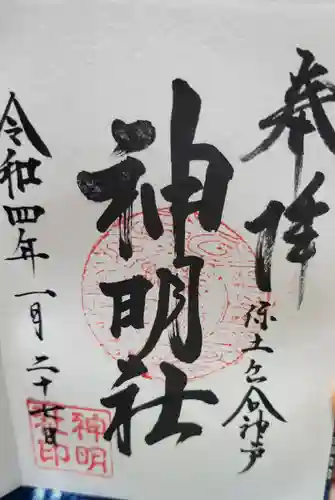 奉拝
保土ケ谷神戸
神明社
令和四年一月二十七日
神明
社印